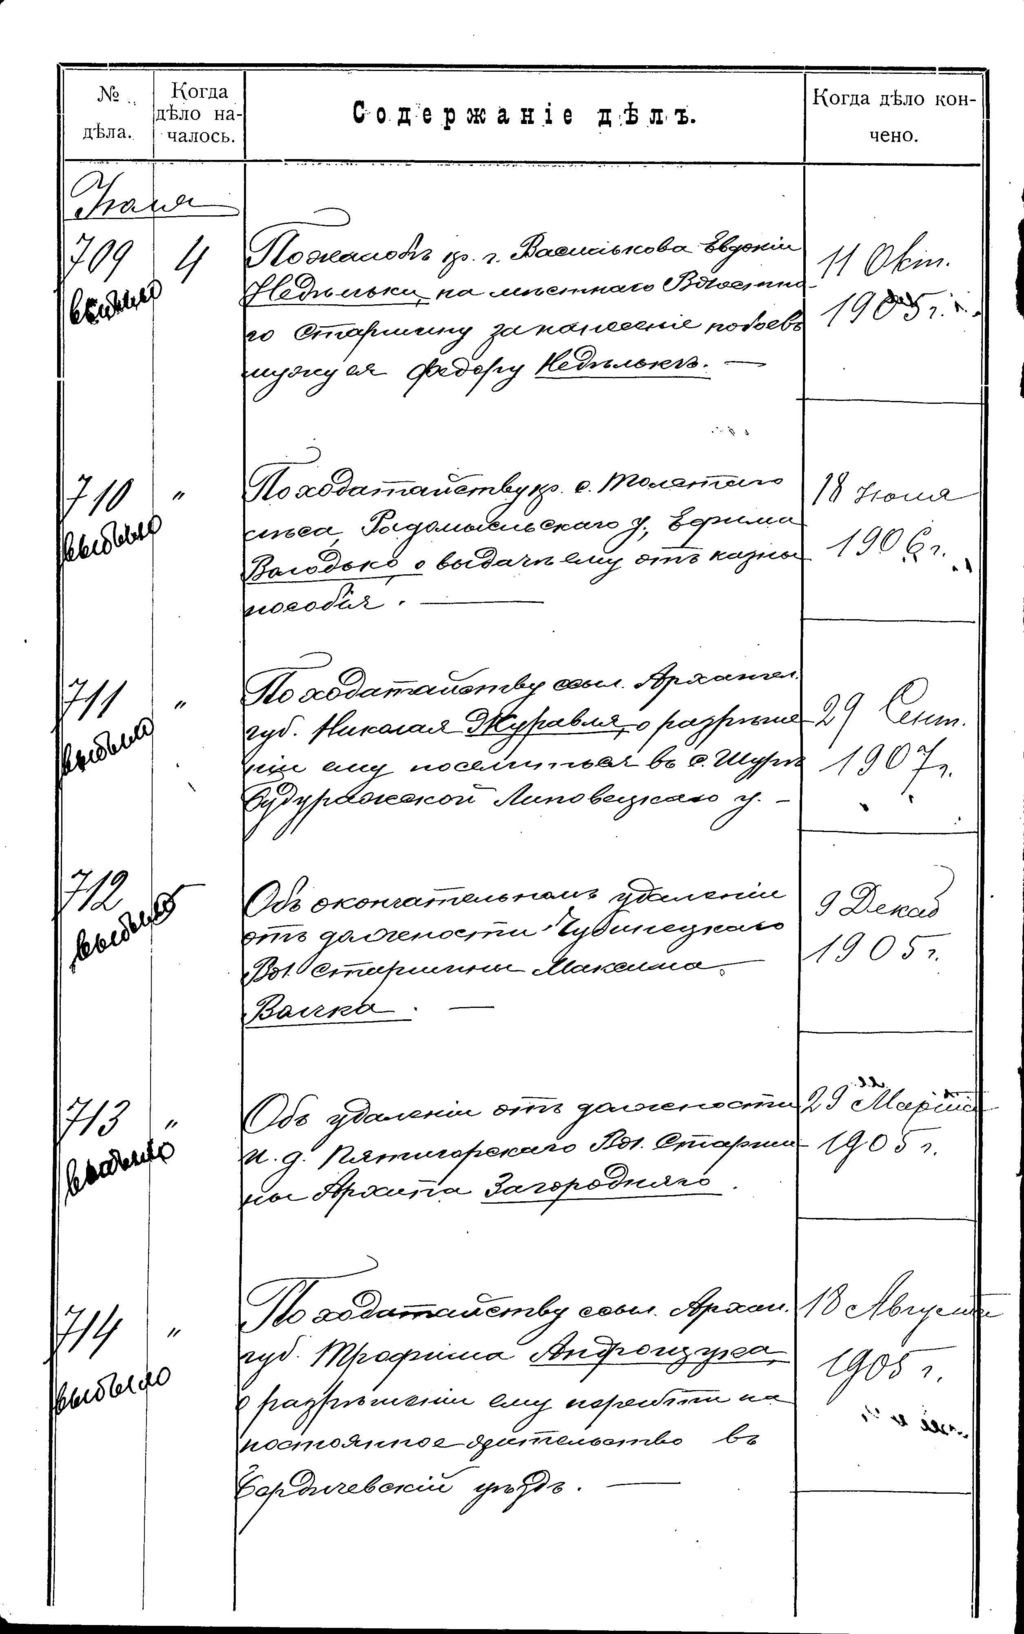 № дѣла.
Когда дѣло началось.
Содержаніе дѣлъ.
Когда дѣло кончено.
Іюня
709 4 выбыло
По жалобѣ кр. г. Василькова Евдокіи
Недѣльки, на мѣстнаго Волостно-
го Старшину за нанесеніе побоевъ
мужу ея Федору Недѣлькѣ. —
11 Окт.
1905 г.
710 " выбыло
По ходатайству кр. с. Толстаго
лѣса, Радомысльскаго у., Ефима
Володько, о выдачѣ ему отъ казны
пособія. —
18 Іюня
1906 г.
711 " выбыло
По ходатайству ссыл. Архангел.
губ. Николая Журавля, о разрѣше
ніи ему поселиться въ с.
Липовецкаго у. —
29 Сент.
1907 г.
712 выбыло
Объ окончательномъ удаленіи
отъ должности
Вол. Старшины Максима
Волчка. —
9 Декаб
1905 г.
713 " выбыло
Объ удаленіи отъ должности
и. д. Пятигорскаго Вол. Старши
ны Архипа Загородняго.
29 Марта
1905 г.
714 " выбыло
По ходатайству ссыл. Архан.
губ. Трофима Андрощука,
о разрѣшеніи ему перейти на
постоянное жительство въ
Бердичевскій уѣздъ. —
18 Августа
1905 г.